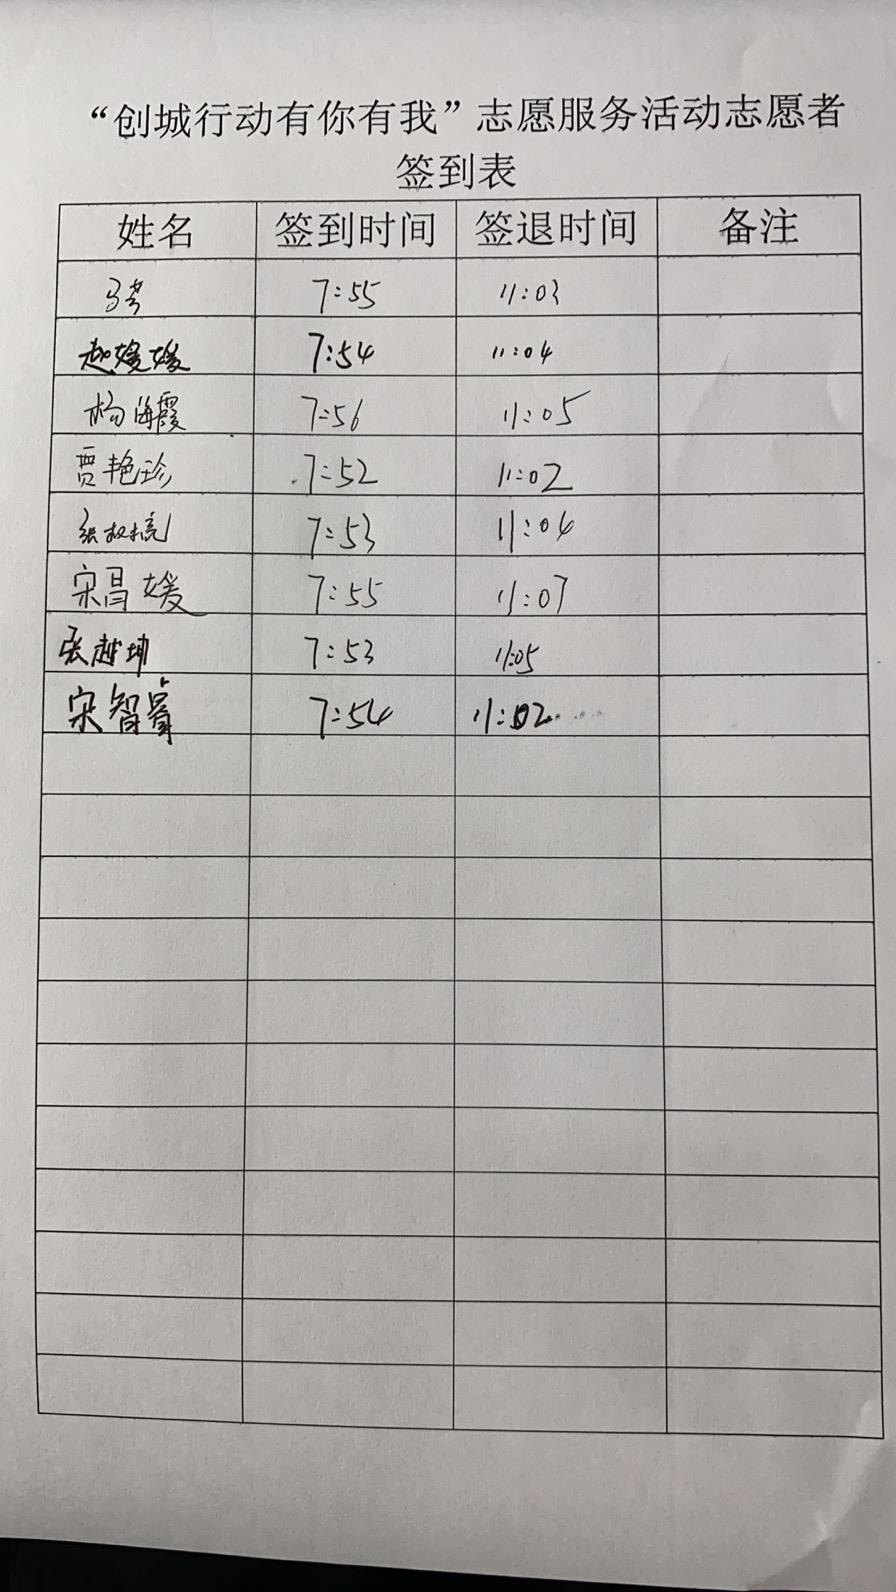 “创城行动有你有我”志愿服务活动志愿者
签到表
姓名 签到时间 签退时间 备注
7:55 11:03
赵媛媛 7:54 11:04
杨海霞 7:56 11:05
贾艳珍 7:52 11:02
7:53 11:04
宋昌媛 7:55 11:07
张越坤 7:53 11:05
宋智睿 7:54 11:02